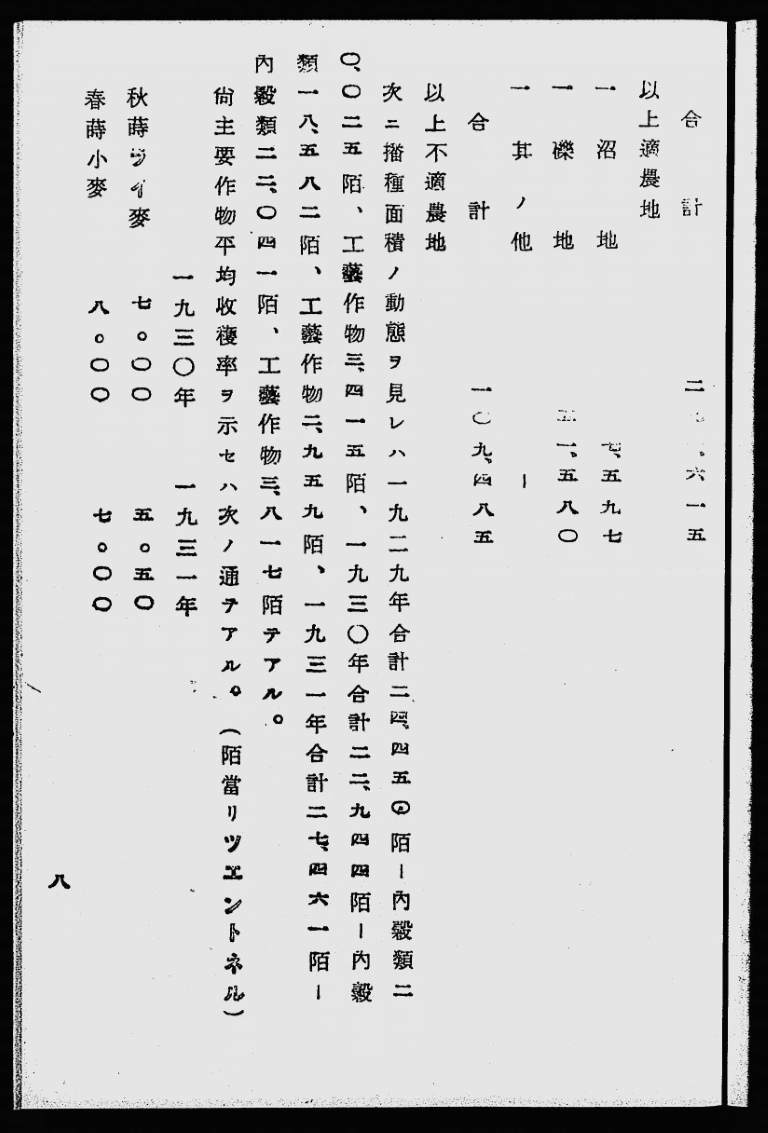 合計　二　、六一五
以上適農地
一　沼地　七、五九七
一　礫地　五一、五八〇
一　其ノ他　ー
合計　一〇九、四八五
以上不適農地
次ニ播種面積ノ動態ヲ見レハ一九二九年合計二四、四五〇陌ー內穀類二
〇、〇二五陌、工藝作物三、四一五陌、一九三〇年合計二二、九四四陌ー內穀
類一八、五八二陌、工藝作物二、九五九陌、一九三一年合計二七、四六一陌ー
內穀類二二、〇四一陌、工藝作物三、八一七陌テアル。
尙主要作物平均收穫率ヲ示セハ次ノ通テアル。（陌當リツエントネル）
一九三〇年　一九三一年
秋蒔ライ麥　七。〇〇　五。五〇
春蒔小麥　八。〇〇　七。〇〇
八